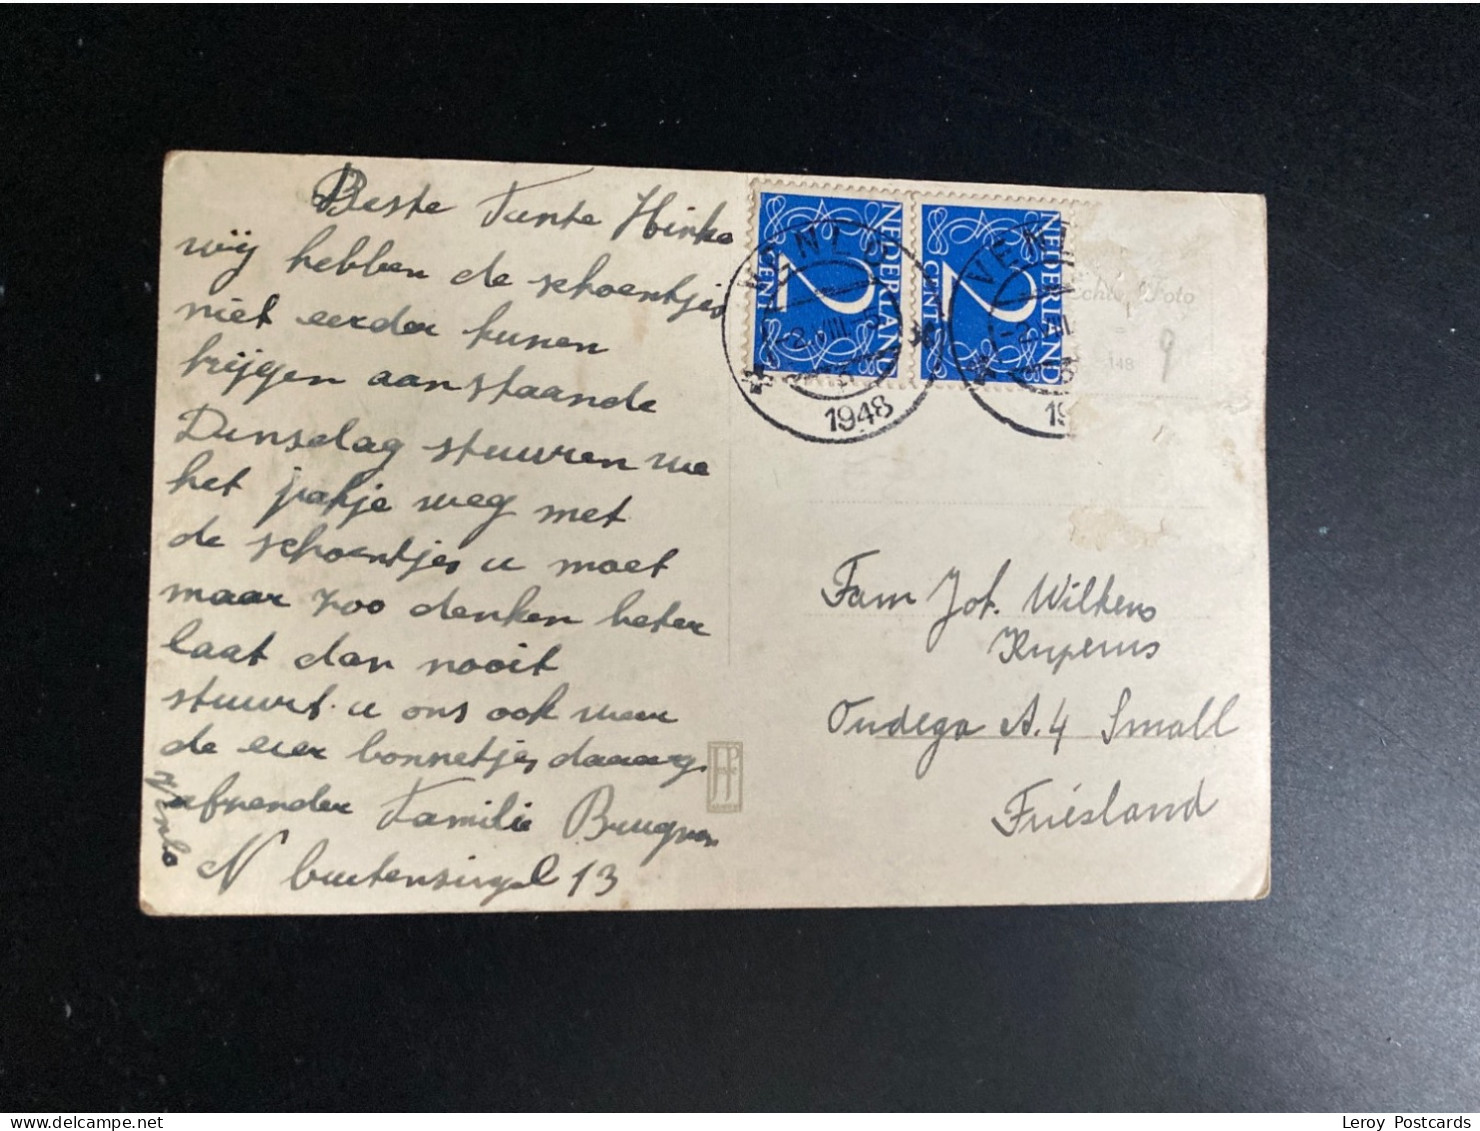 Beste Tante Hinke
wij hebben de schoentjes
niet eerder kunen
krijgen aanstaande
Dinsdag stuuren we
het pakje weg met
de schoentjes u moet
maar zoo denken beter
laat dan nooit
stuurt u ons ook weer
de eier bonnetjes daaarg
afsender Familie Brugman
N buitensingel 13
Venlo
NEDERLAND
2
CENT
NEDERLAND
2
CENT
VENLO
-2.VIII.-5
1948
VEN
-2.VIII
19
Echte Foto
148
9
Fam Joh. Wilkens
Kuperus
Oudega A.4 Small
Friesland
Leroy Postcards